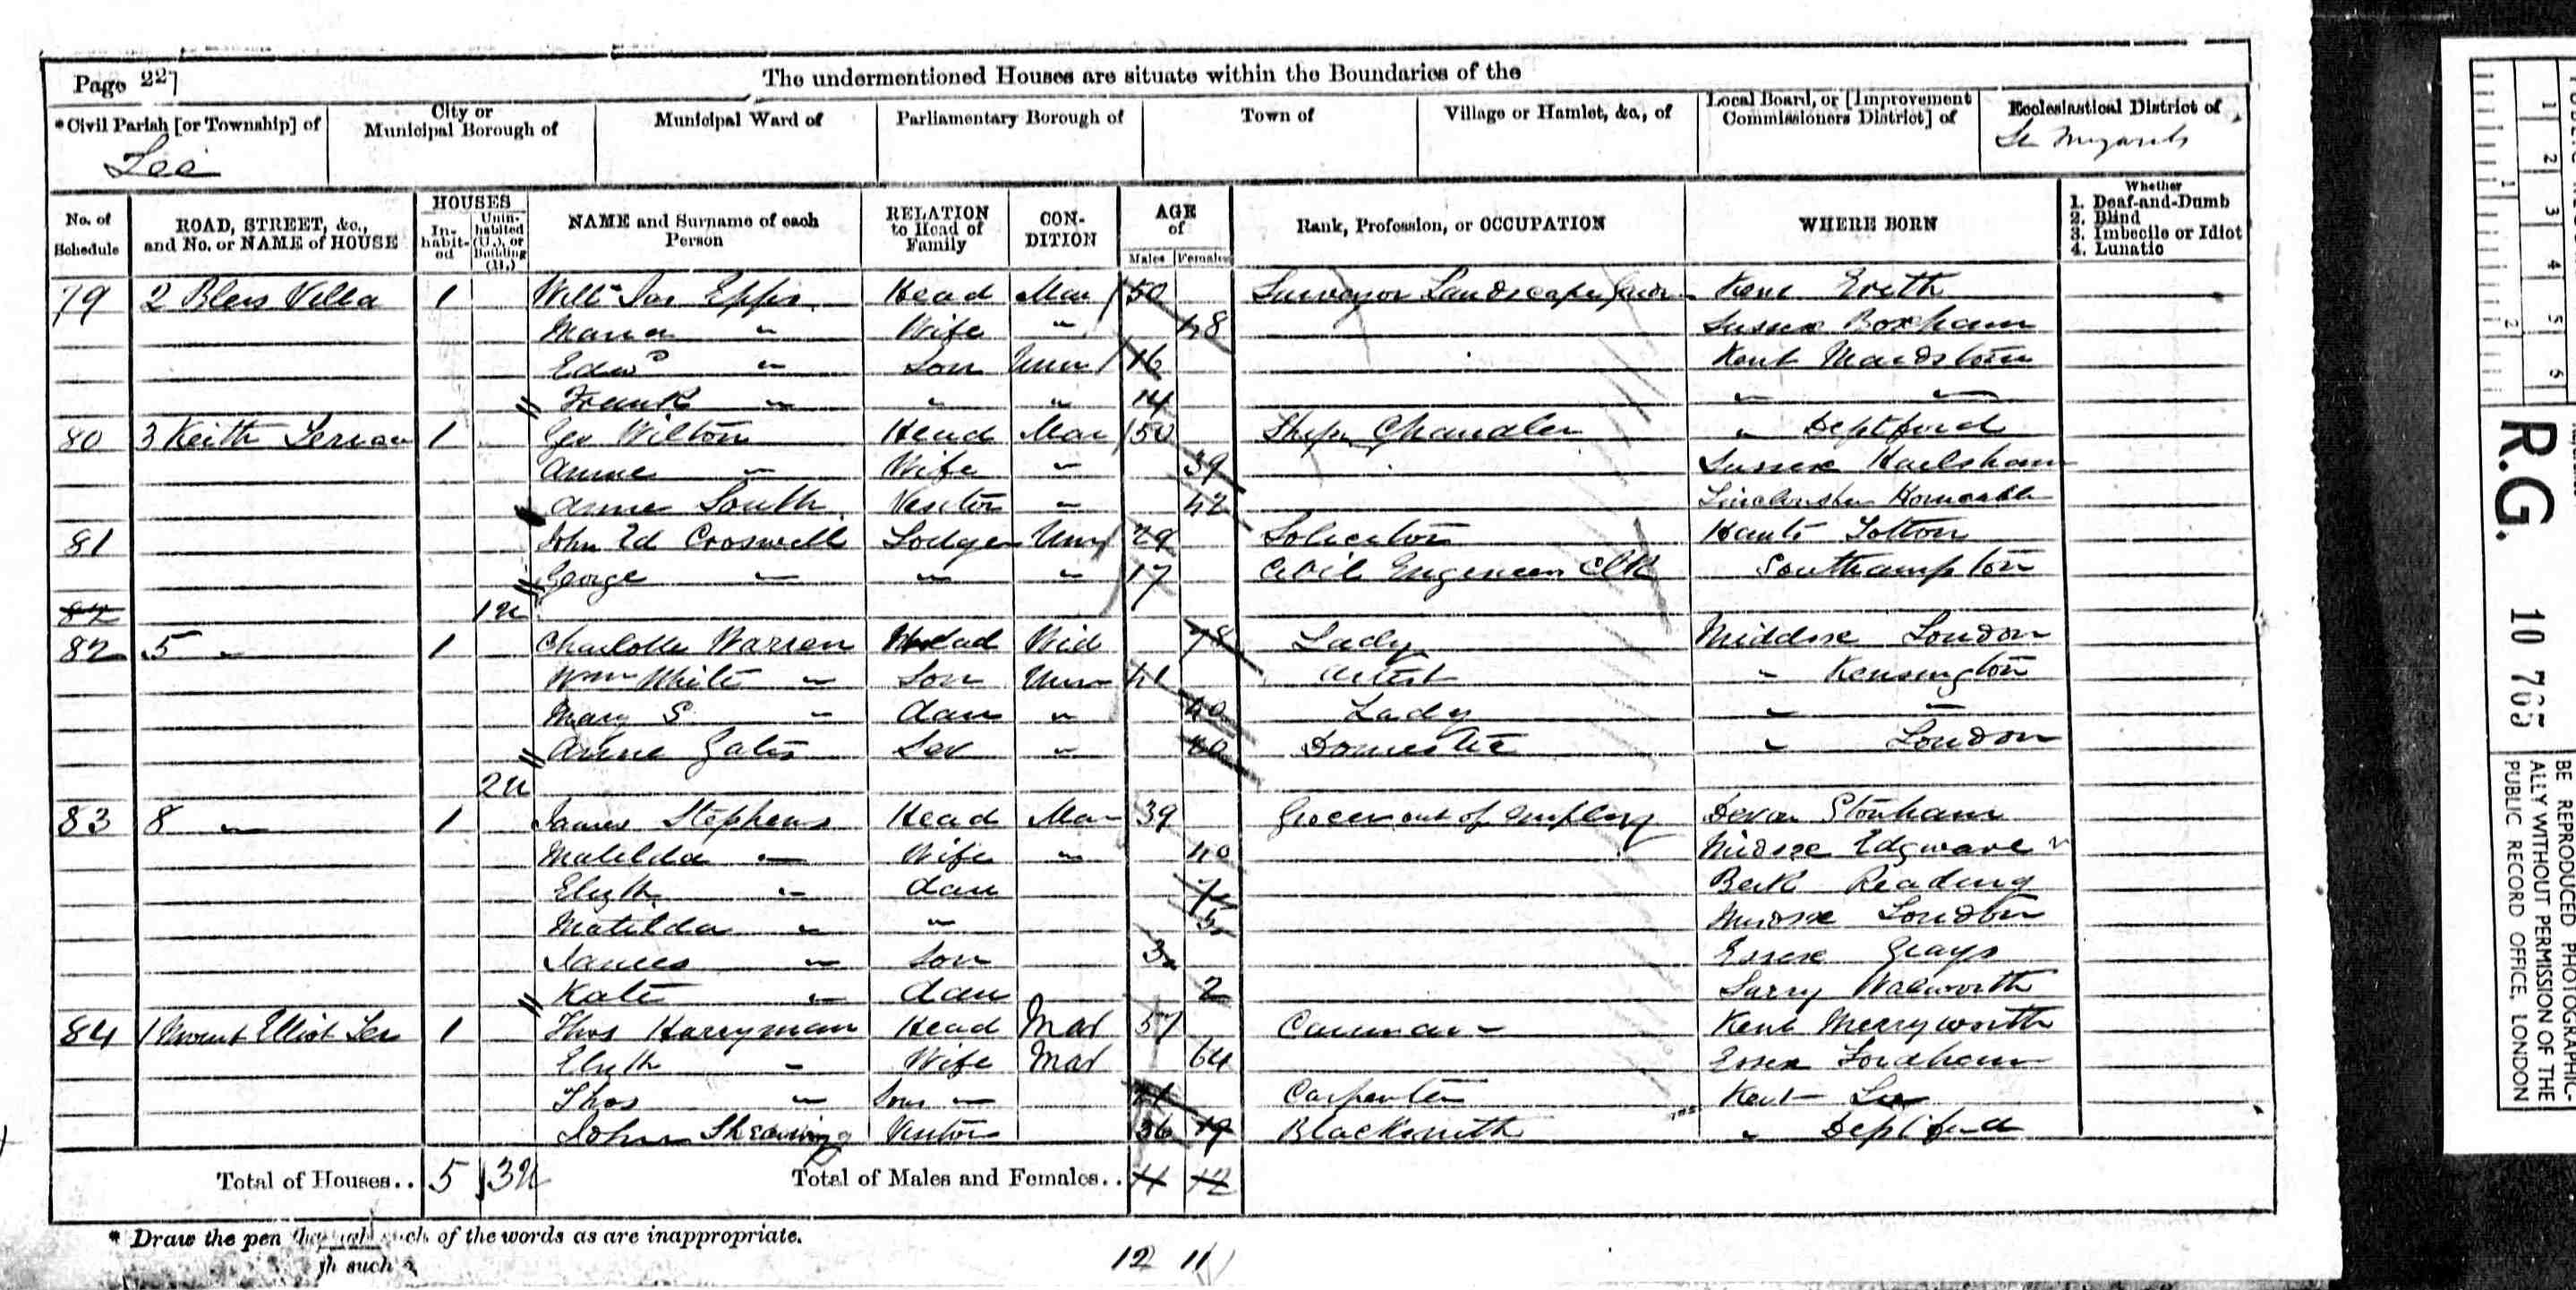 Page 227
The undermentioned Houses are situate within the Boundaries of the
*Civil Parish [or Township] of
City or Municipal Borough of
Municipal Ward of
Parliamentary Borough of
Town of
Village or Hamlet, &c., of
Local Board, or [Improvement Commissioners District] of
Ecclesiastical District of
Lee
No. of Schedule
ROAD, STREET, &c., and No. or NAME of HOUSE
HOUSES
In-habit-ed
Unin-habited (U.), or Building (B.)
NAME and Surname of each Person
RELATION to Head of Family
CON-DITION
AGE of
Males Females
Rank, Profession, or OCCUPATION
WHERE BORN
Whether
1. Deaf-and-Dumb
2. Blind
3. Imbecile or Idiot
4. Lunatic
79 2 Villa 1 Willm Jas Epps Head Mar 50 Surveyor Landscape Kent Erith
Maria " Wife " 48 Sussex
Edwd " Son Unm 16 Kent Maidstone
Frank " " " 14 " "
80 3 Keith Terrace 1 Geo Wilton Head Mar 50 Ship Chandler " Deptford
Annie " Wife " 39 Sussex Hailsham
Annie South Visitor " 42 Lincolnshire
81 John Ed Croswell Lodger Unm 29 Solicitor Hants Totton
George " " " 17 Civil Engineer Clk Southampton
82
1u
82 5 " 1 Charlotte Warren Head Wid 78 Lady Middsx London
Wm White " Son Unm 41 Artist " Kensington
Mary S " dau " 40 Lady " "
Annie Gates Ser " 20 Domestic " London
2u
83 8 " 1 James Stephens Head Mar 39 Grocer out of employ Devon
Matilda " Wife " 40 Middsx Edgware
Elizth " dau 7 Berk Reading
Matilda " " 5 Middsx London
James " Son 3 Essex Grays
Kate " dau 2 Surry Walworth
84 1 Mount Elliot Ter 1 Thos Harryman Head Mar 57 Carman Kent Merryworth
Elizth " Wife Mar 64 Essex Fordham
Thos " Son " 21 Carpenter Kent Lee
John Shearing Visitor 36 19 Blacksmith " Deptford
Total of Houses.. 5 3u Total of Males and Females.. 11 12
* Draw the pen such of the words as are inappropriate.
12 11
h such
R.G. 10 765
BE REPRODUCED PHOTOGRAPHIC-
ALLY WITHOUT PERMISSION OF THE
PUBLIC RECORD OFFICE, LONDON
1 2 3 4 5 6
1 2